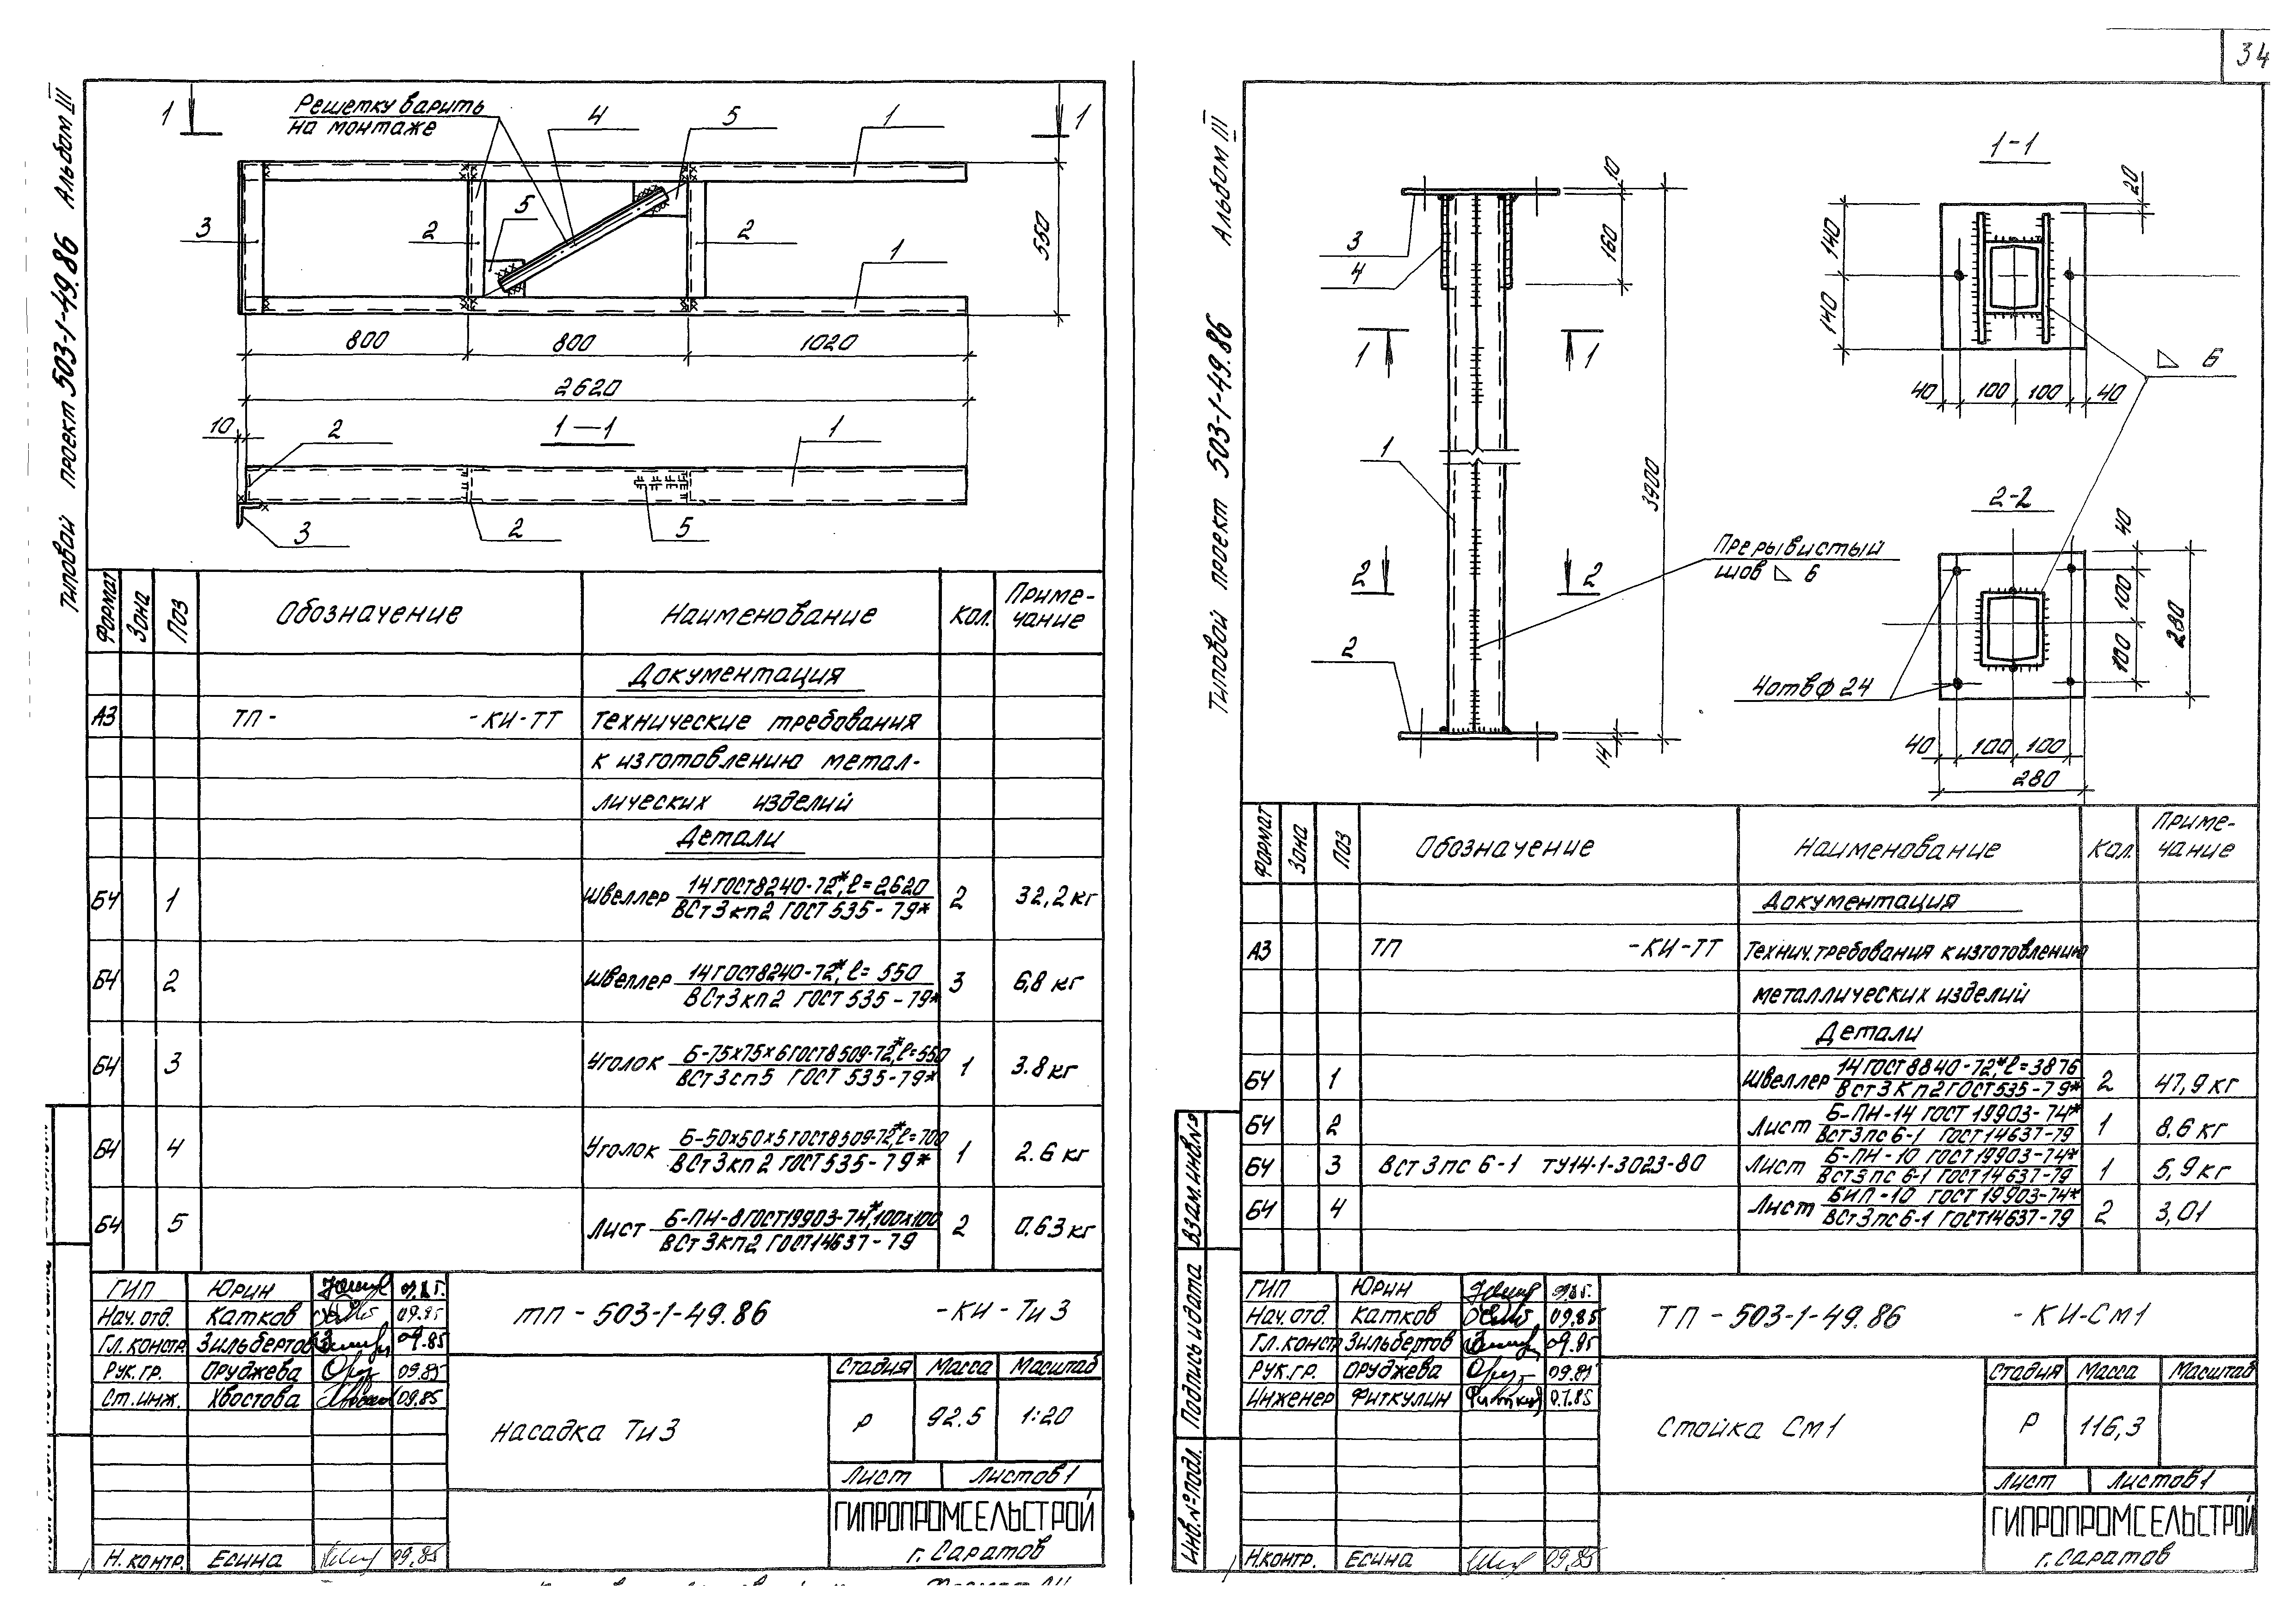 34
Типовой проект 503-1-49.86 Альбом III
1
Решетку варить
на монтаже
4
5
1
1
3
2
5
2
1
550
800
800
1020
2620
10
2
1—1
1
3
2
5
Формат
Зона
Поз
Обозначение
Наименование
Кол.
Приме-
чание
Документация
А3 ТП- -КИ-ТТ Технические требования
к изготовлению метал-
лических изделий
Детали
БЧ 1 Швеллер 14 ГОСТ 8240-72*, ℓ=2620 2 32,2 кг
ВСт3кп2 ГОСТ 535-79*
БЧ 2 Швеллер 14 ГОСТ 8240-72*, ℓ=550 3 6,8 кг
ВСт3кп2 ГОСТ 535-79*
БЧ 3 Уголок Б-75х75х6 ГОСТ 8509-72*, ℓ=550 1 3.8 кг
ВСт3сп5 ГОСТ 535-79*
БЧ 4 Уголок Б-50х50х5 ГОСТ 8509-72*, ℓ=700 1 2.6 кг
ВСт3кп2 ГОСТ 535-79*
БЧ 5 Лист Б-ПН-8 ГОСТ 19903-74*, 100х100 2 0.63 кг
ВСт3кп2 ГОСТ 14637-79
ГИП Юрин 09.85.
Нач.отд. Катков 09.85
Гл.констр. Зильбертов 09.85
Рук.гр. Оруджева 09.85
Ст.инж. Хвостова 09.85
Н.контр. Есина 09.85
ТП-503-1-49.86 -КИ-Ти3
Насадка Ти3
Стадия Масса Масштаб
Р 92.5 1:20
Лист Листов 1
ГИПРОПРОМСЕЛЬСТРОЙ
г. Саратов
Типовой проект 503-1-49.86 Альбом III
3
4
10
160
1
1
1
3900
2
2
Прерывистый
шов 6
2
14
1-1
20
140
140
6
40 100 100 40
2-2
40
100
100
280
4отв ф 24
40 100 100
280
Формат
Зона
Поз
Обозначение
Наименование
Кол.
Приме-
чание
Документация
А3 ТП -КИ-ТТ Технич. требования к изготовлению
металлических изделий
Детали
БЧ 1 Швеллер 14 ГОСТ 8840-72*, ℓ=3876 2 47,9 кг
ВСт3кп2 ГОСТ 535-79*
БЧ 2 Лист Б-ПН-14 ГОСТ 19903-74* 1 8.6 кг
ВСт3пс6-1 ГОСТ 14637-79
БЧ 3 ВСт3пс6-1 ТУ14-1-3023-80 Лист Б-ПН-10 ГОСТ 19903-74* 1 5,9 кг
ВСт3пс6-1 ГОСТ 14637-79
БЧ 4 Лист БИП-10 ГОСТ 19903-74* 2 3,01
ВСт3пс6-1 ГОСТ 14637-79
Взам.инв.№
Подпись и дата
Инв.№ подл.
ГИП Юрин 09.85.
Нач.отд. Катков 09.85
Гл.конст Зильбертов 09.85
Рук.гр. Оруджева 09.85
Инженер Фиткулин 07.85
Н.контр. Есина 09.85
ТП-503-1-49.86 -КИ-СМ1
Стойка СМ1
Стадия Масса Масштаб
Р 116,3
Лист Листов 1
ГИПРОПРОМСЕЛЬСТРОЙ
г. Саратов